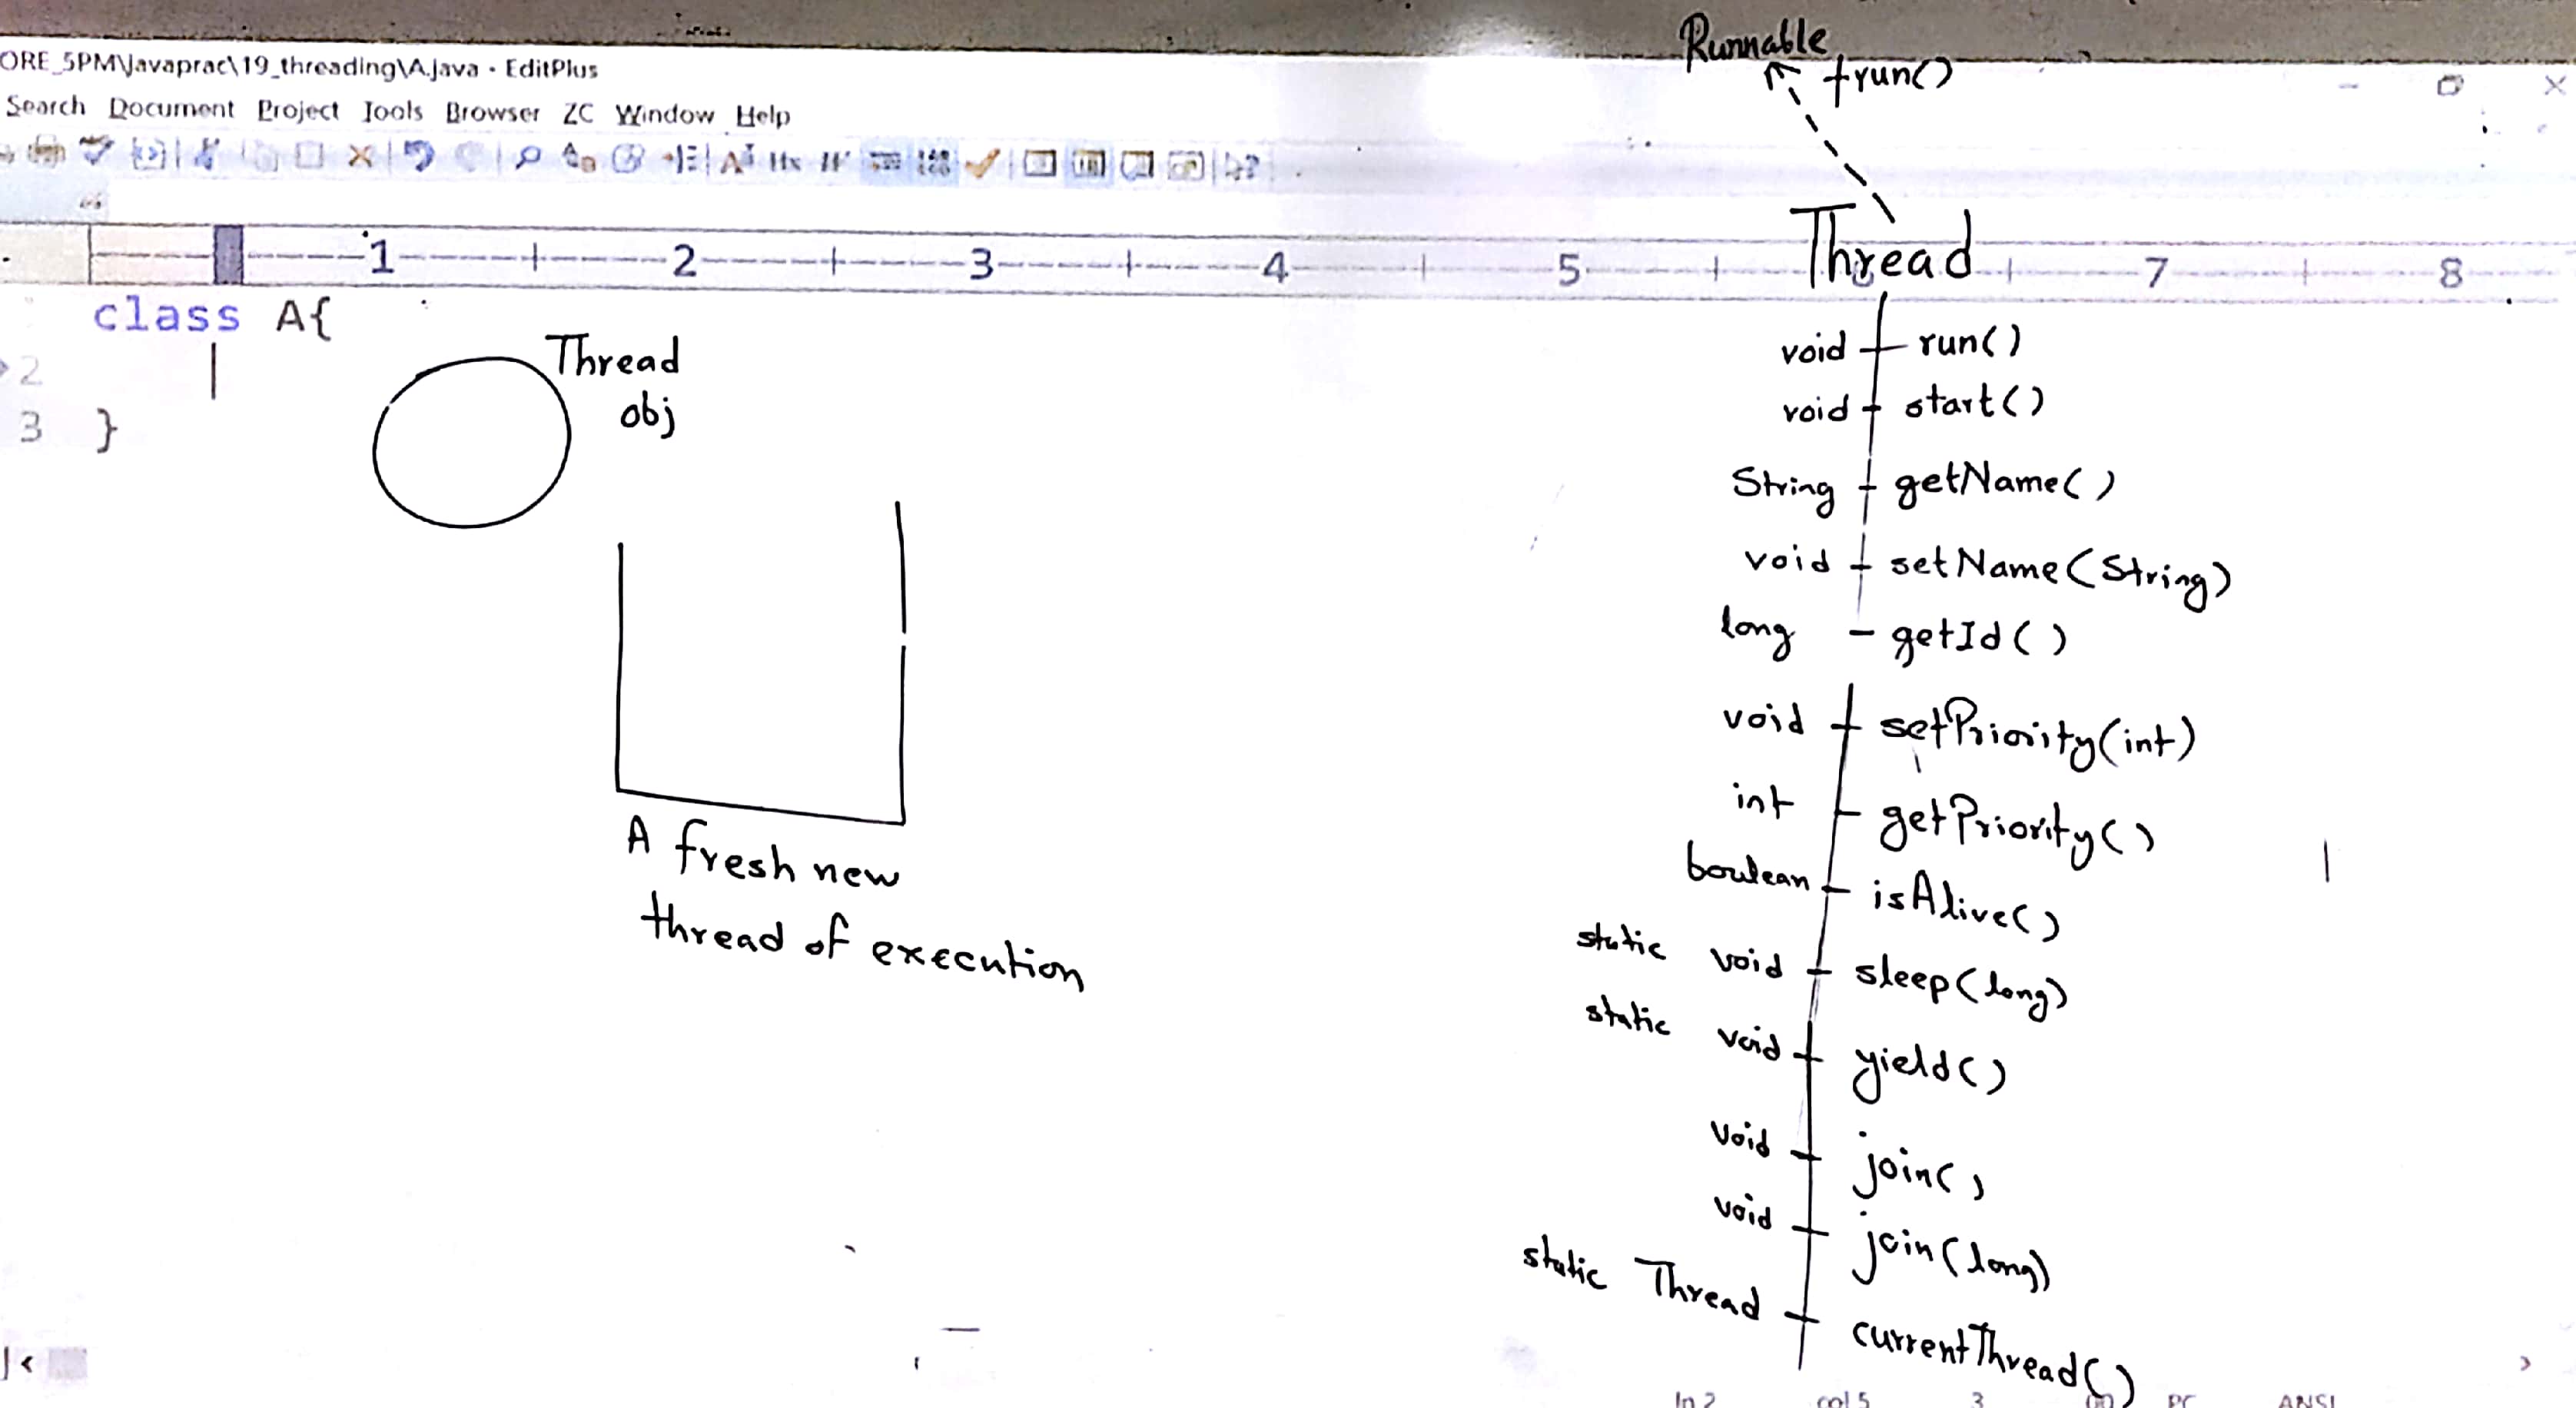 ORE_5PM\Javaprac\19_threading\A.java - EditPlus
Search Document Project Tools Browser ZC Window Help
1 2 3 4 5 7 8
class A{
2
3 }
Thread
obj
A fresh new
thread of execution
Runnable
+run()
Thread
void run()
void start()
String getName()
void setName(String)
long getId()
void setPriority(int)
int getPriority()
boolean isAlive()
static void sleep(long)
static void yield()
void join()
void join(long)
static Thread currentThread()
ln 2 col 5 3 PC ANSI